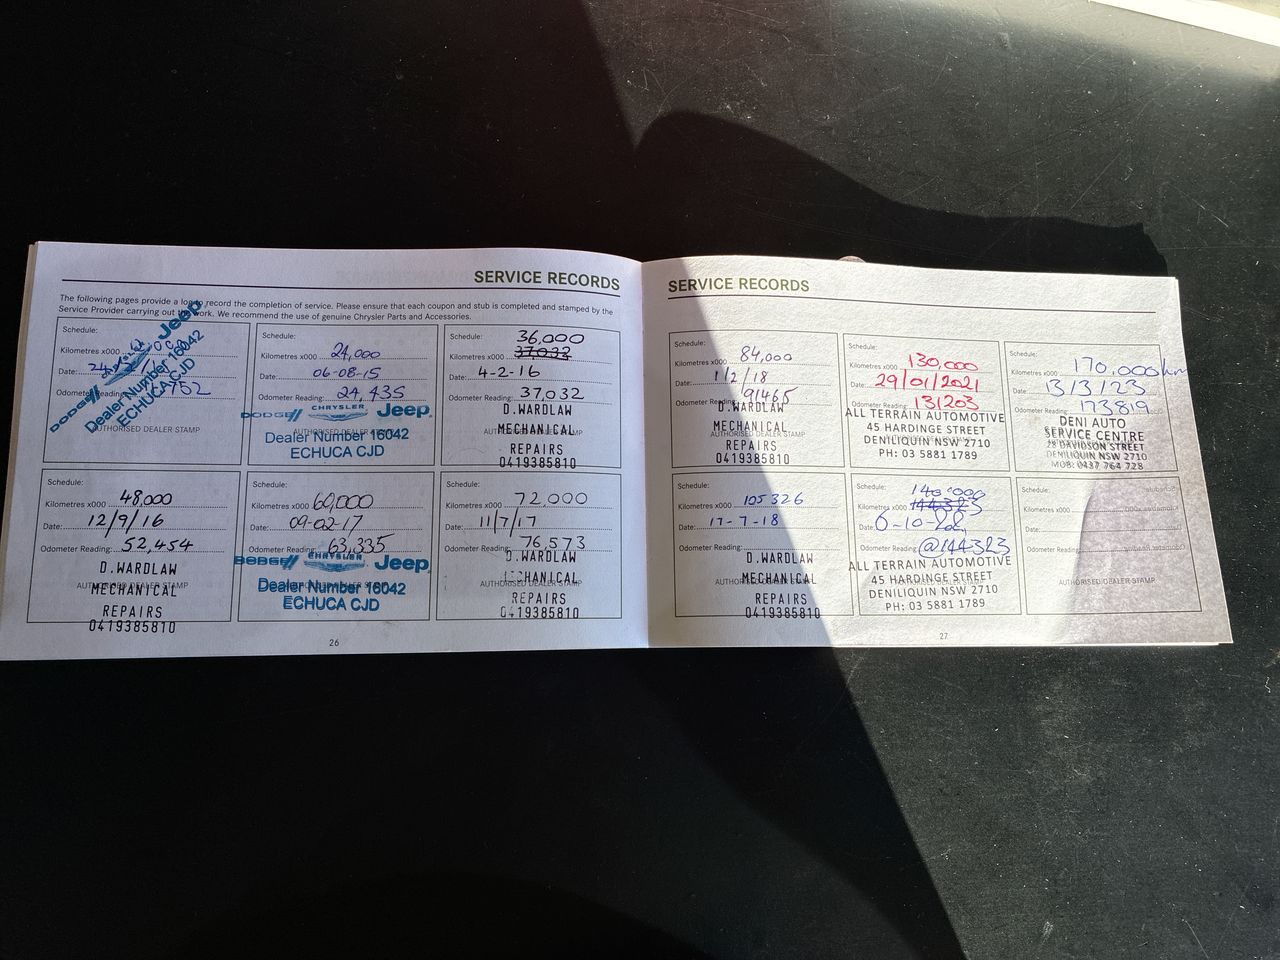 SERVICE RECORDS
The following pages provide a log to record the completion of service. Please ensure that each coupon and stub is completed and stamped by the
Service Provider carrying out the work. We recommend the use of genuine Chrysler Parts and Accessories.
Schedule:
Kilometres x000
Date:
Odometer Reading:
DODGE Jeep
Dealer Number 16042
ECHUCA CJD
AUTHORISED DEALER STAMP
Schedule:
Kilometres x000 24,000
Date: 06-08-15
Odometer Reading: 24,435
DODGE CHRYSLER Jeep
AUTHORISED DEALER STAMP
Dealer Number 16042
ECHUCA CJD
Schedule: 36,000
Kilometres x000 37,032
Date: 4-2-16
Odometer Reading: 37,032
D.WARDLAW
MECHANICAL
AUTHORISED DEALER STAMP
REPAIRS
0419385810
Schedule:
Kilometres x000 48,000
Date: 12/9/16
Odometer Reading: 52,454
D.WARDLAW
AUTHORISED DEALER STAMP
MECHANICAL
REPAIRS
0419385810
Schedule:
Kilometres x000 60,000
Date: 09-02-17
Odometer Reading: 63,335
DODGE CHRYSLER Jeep
AUTHORISED DEALER STAMP
Dealer Number 16042
ECHUCA CJD
Schedule:
Kilometres x000 72,000
Date: 11/7/17
Odometer Reading: 76,573
D.WARDLAW
MECHANICAL
AUTHORISED DEALER STAMP
REPAIRS
0419385810
26
SERVICE RECORDS
Schedule:
Kilometres x000 84,000
Date: 1/2/18
Odometer Reading: 91465
D.WARDLAW
MECHANICAL
AUTHORISED DEALER STAMP
REPAIRS
0419385810
Schedule:
Kilometres x000 130,000
Date: 29/01/2021
Odometer Reading: 131203
ALL TERRAIN AUTOMOTIVE
45 HARDINGE STREET
DENILIQUIN NSW 2710
PH: 03 5881 1789
Schedule:
Kilometres x000 170,000km
Date: 13/3/23
Odometer Reading: 173819
DENI AUTO
SERVICE CENTRE
DAVIDSON STREET
DENILIQUIN NSW 2710
MOB: 0437 764 728
Schedule:
Kilometres x000 105326
Date: 17-7-18
Odometer Reading:
D.WARDLAW
MECHANICAL
AUTHORISED DEALER STAMP
REPAIRS
0419385810
Schedule: 140,000
Kilometres x000 144323
Date:
Odometer Reading: @144323
ALL TERRAIN AUTOMOTIVE
45 HARDINGE STREET
DENILIQUIN NSW 2710
PH: 03 5881 1789
Schedule:
Kilometres x000
Date:
Odometer Reading:
AUTHORISED DEALER STAMP
27